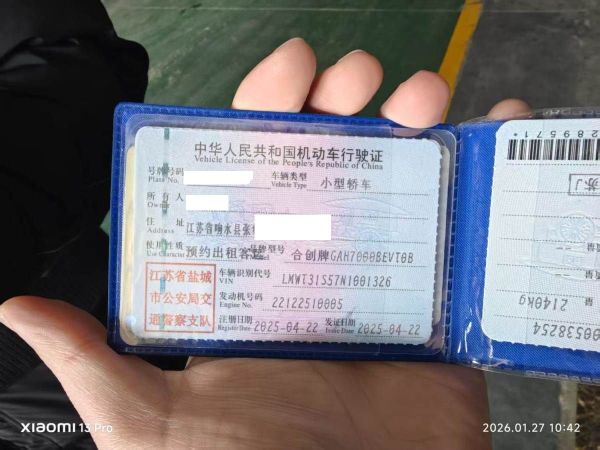 中华人民共和国机动车行驶证
Vehicle License of the People's Republic of China
号牌号码
Plate No.
车辆类型 小型轿车
Vehicle Type
所有人
Owner
住 址 江苏省响水县张
Address
使用性质 预约出租客运
Use Character
品牌型号 合创牌GAH7000BEVT0B
车辆识别代号 LMWT31S57N1001326
VIN
发动机号码 22122510005
Engine No.
注册日期 2025-04-22
Register Date
发证日期 2025-04-22
Issue Date
江苏省盐城
市公安局交
通警察支队
289571
苏J
2140kg
00538254
XIAOMI 13 Pro
2026.01.27 10:42